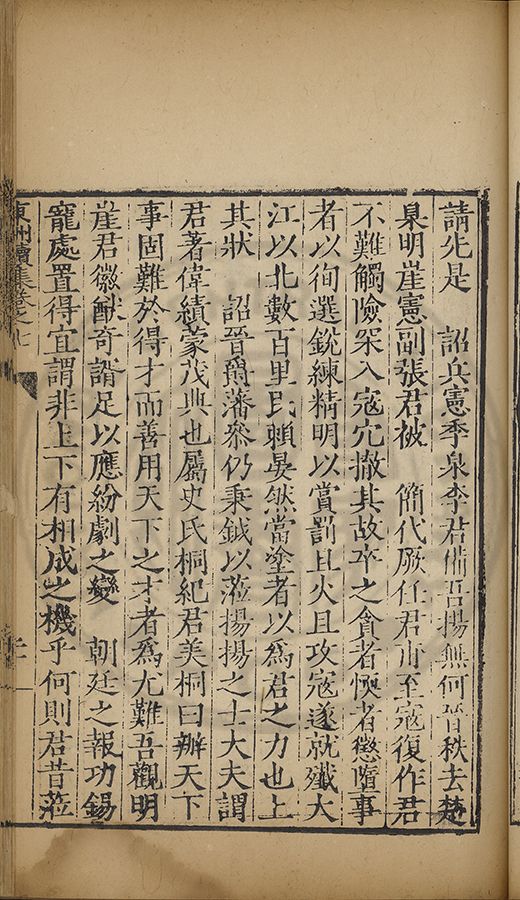 請先是　詔兵憲季泉李君備吾揚無何晉秩去楚
臬明崖憲副張君被　簡代厥任君甫至寇復作君
不難觸險罙入寇穴撤其故卒之貪者愞者懲墮事
者以徇選銳練精明以賞罰且火且攻寇遂就殲大
江以北數百里民賴晏然當塗者以為君之力也上
其狀　詔晉爵藩叅仍秉鉞以蒞揚揚之士大夫謂
君著偉績蒙茂典也屬史氏桐紀君美桐曰辦天下
事固難於得才而善用天下之才者為尤難吾觀明
崖君徽猷奇謂足以應紛劇之變　朝廷之報功錫
寵處置得宜謂非上下有相成之機乎何則君昔蒞
東洲續集卷之七